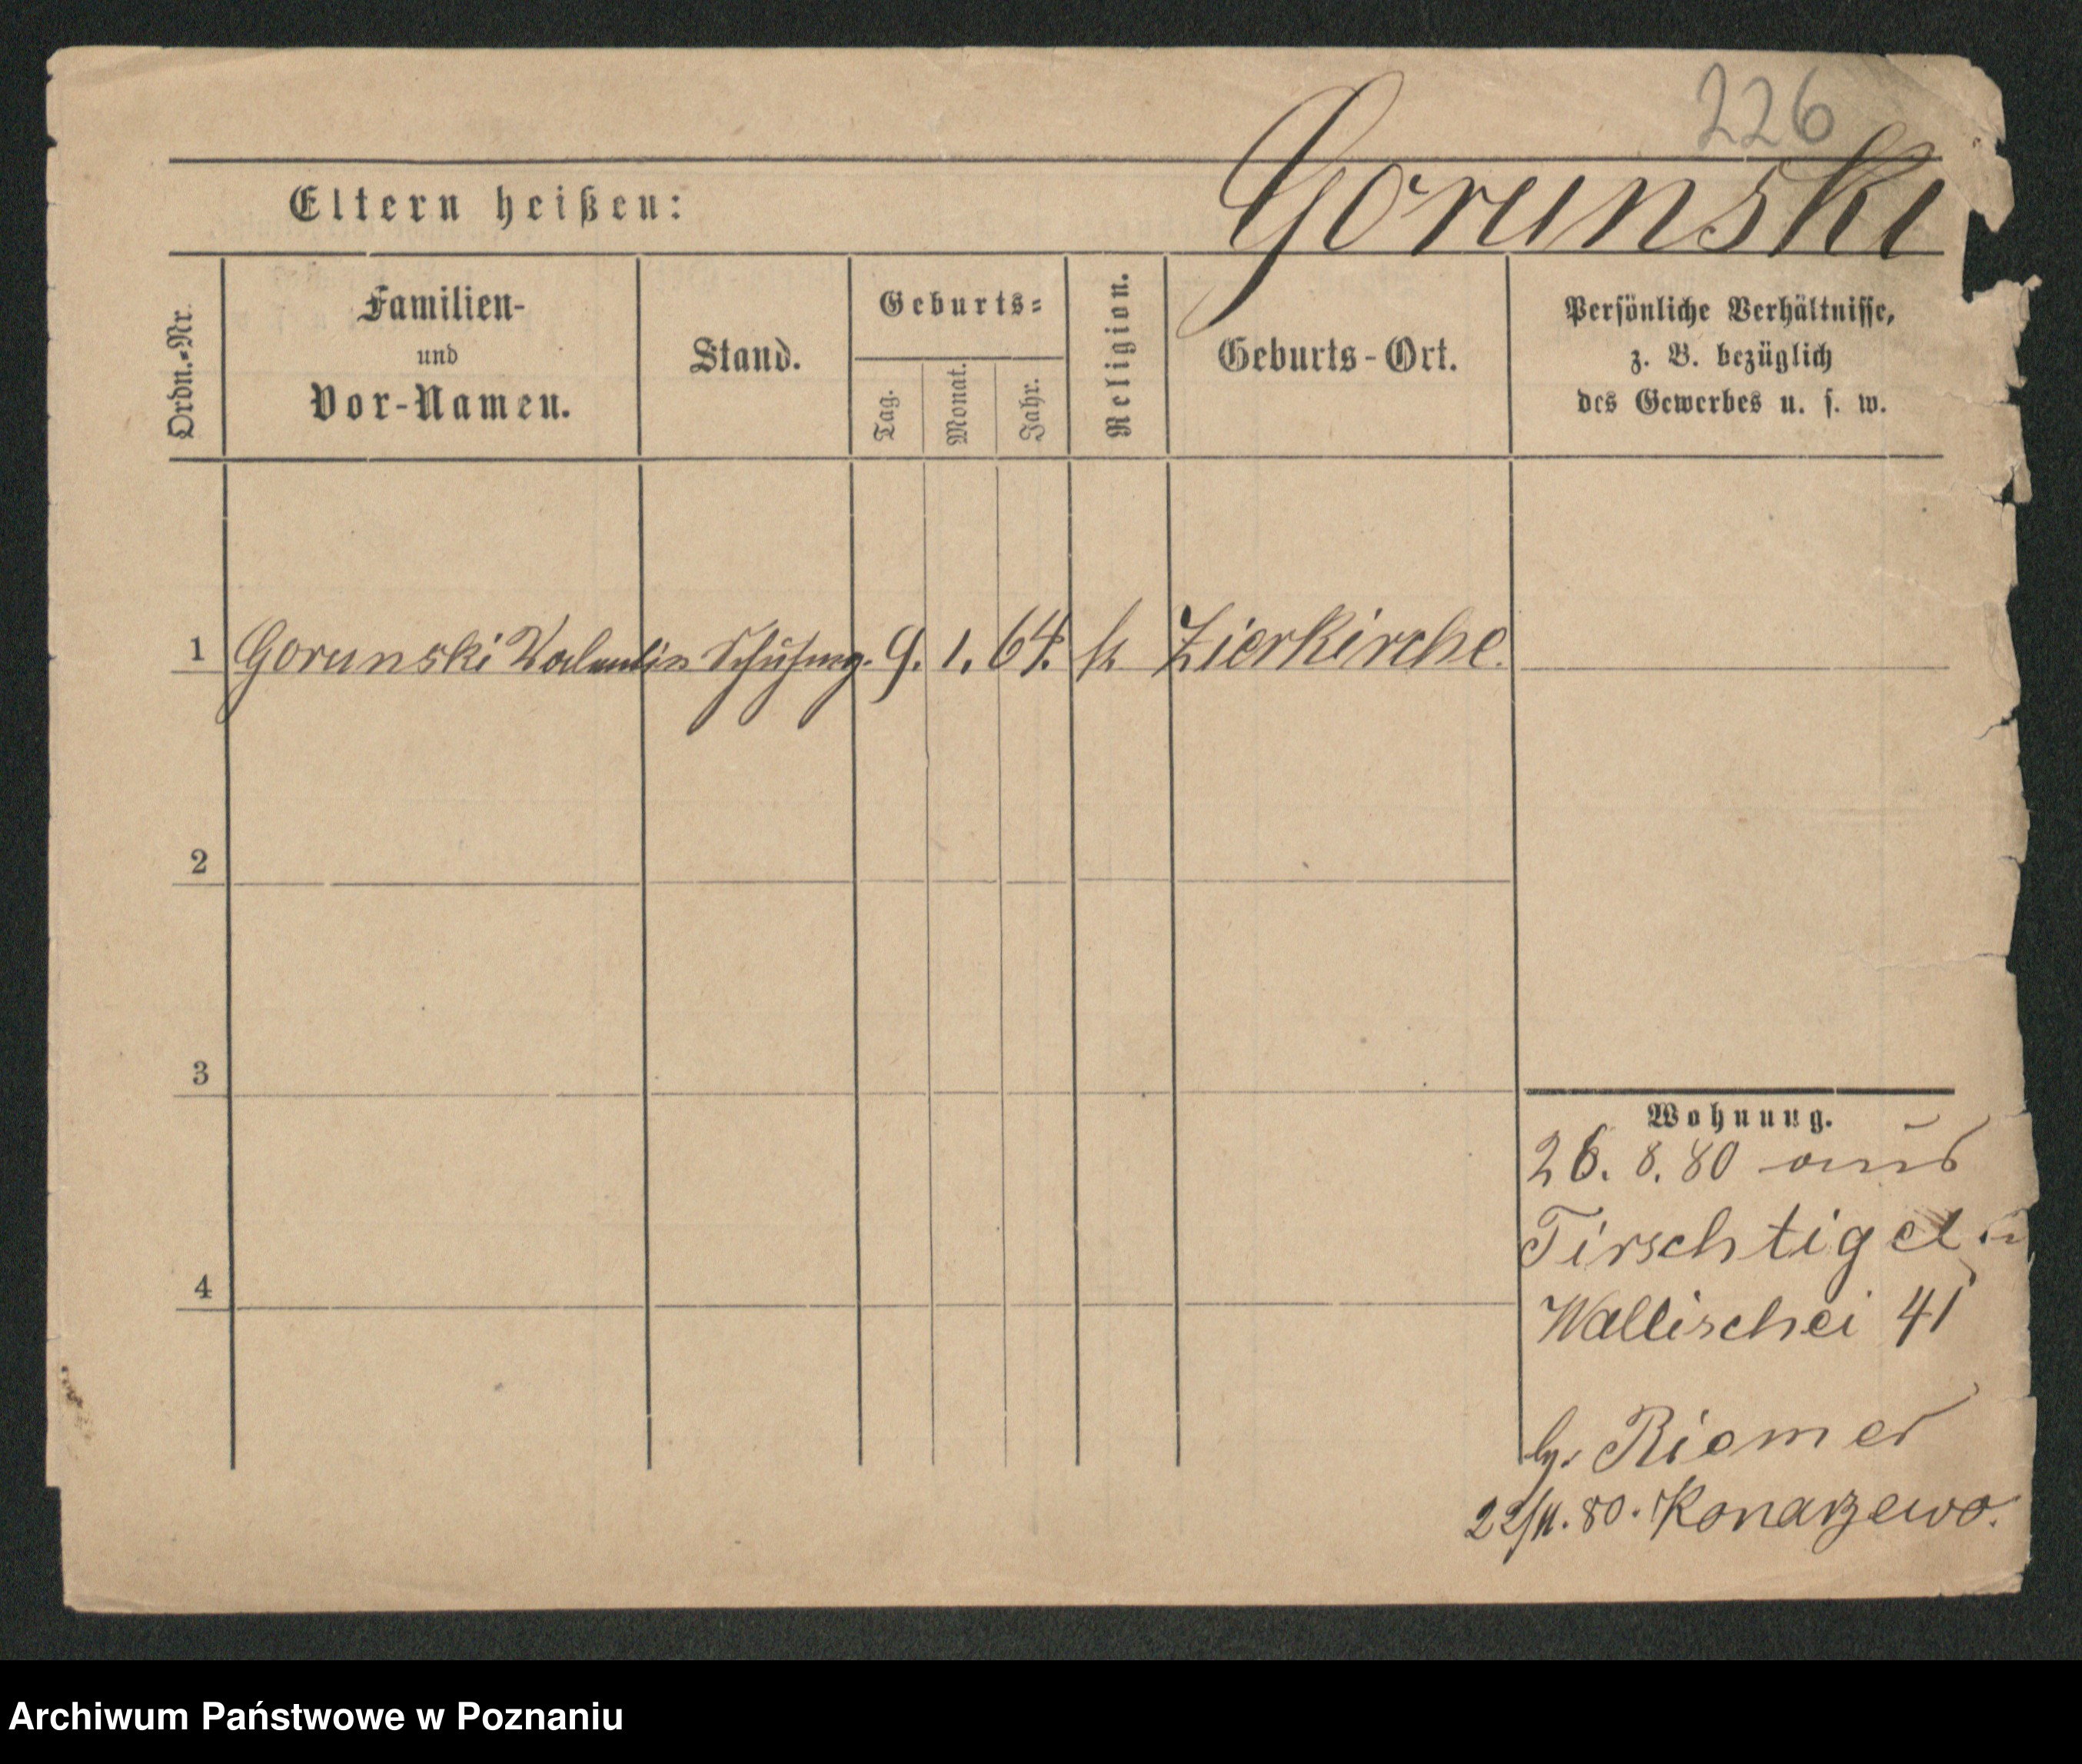 226
Gorunski
Eltern heißen:
Ordn.-Nr.
Familien-
und
Vor-Namen.
Stand.
Geburts-
Tag.
Monat.
Jahr.
Religion.
Geburts-Ort.
Persönliche Verhältnisse,
z. B. bezüglich
des Gewerbes u. s. w.
1 Gorunski Valentin 9. 1. 64. k Zierkirche.
2
3
4
Wohnung.
26. 8. 80 aus
Tirschtigel
Wallischei 41
Riemer
22/11. 80. Konarzewo.
Archiwum Państwowe w Poznaniu